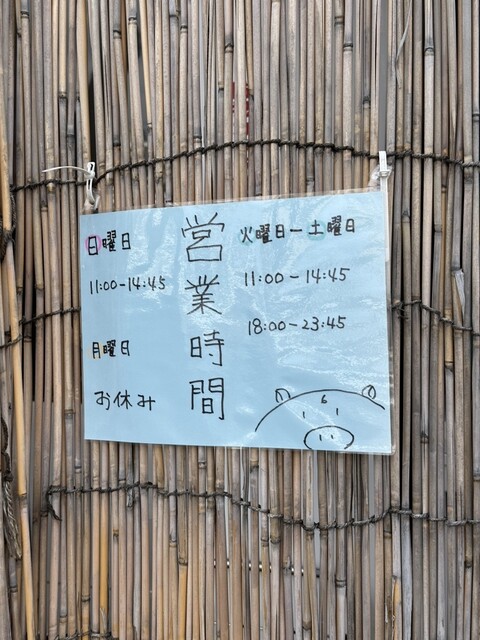 営業時間
火曜日ー土曜日
11:00-14:45
18:00-23:45
日曜日
11:00-14:45
月曜日
お休み